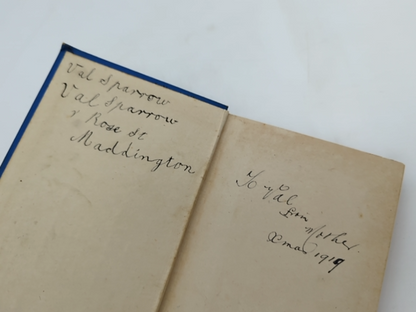 Val Sparrow
Val Sparrow
Rose St
Maddington
To Val
from
Mother
Xmas 1919